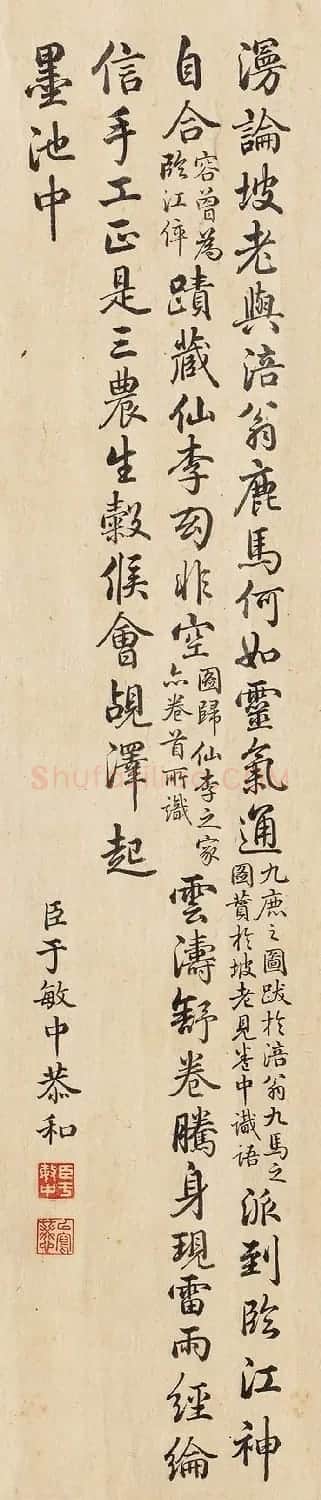 漫論坡老與涪翁鹿馬何如靈氣通九鹿之圖跋於涪翁九馬之圖贊於坡老見卷中識語派到臨江神
自合容曾為臨江倅蹟藏仙李非空圖歸仙李之家亦卷首所識雲濤舒卷騰身現雷雨經綸
信手工正是三農生穀候會覘澤起
墨池中
臣于敏中恭和
臣于敏中